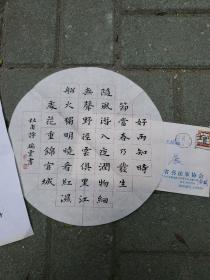 好雨知時
節當春乃發生
隨風潛入夜潤物細
無聲野徑雲俱黑江
船火獨明曉看紅濕
處花重錦官城
杜甫詩